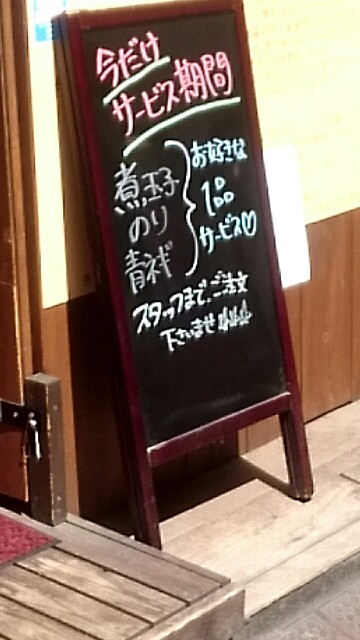 今だけ
サービス期間
煮玉子
のり
青ネギ
お好きな
1品
サービス♡
スタッフまで、ご注文
下さいませ